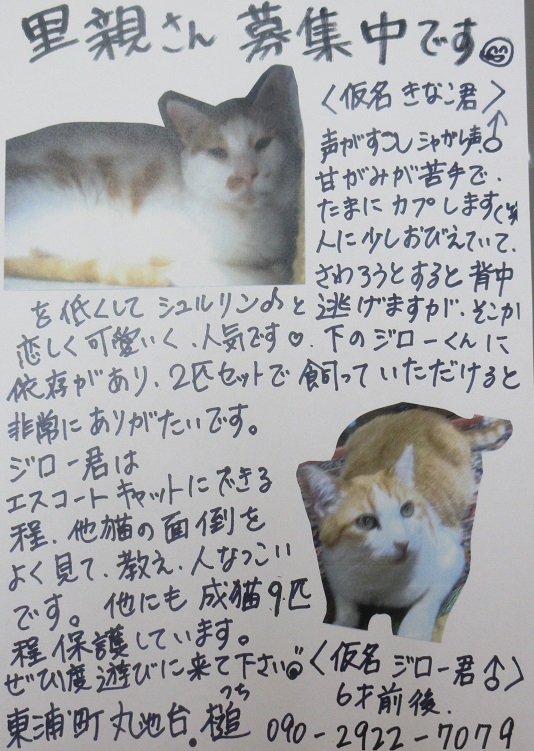 里親さん募集中です
〈仮名 きなこ君♂〉
声がすこしシャがれ声
甘がみが苦手で、
たまにカプします(笑
人に少しおびえていて、
さわろうとすると背中
を低くしてシュルリン♪と逃げますが、そこが
恋しく可愛いく、人気です♡、下のジローくんに
依存があり、2匹セットで飼っていただけると
非常にありがたいです。
ジロー君は
エスコートキャットにできる
程、他猫の面倒を
よく見て、教え、人なつこい
です。他にも成猫9匹
程保護しています。
ぜひ1度遊びに来て下さい
〈仮名 ジロー君♂〉
6才前後、
東浦町丸池台。槌 つち 090-2922-7079